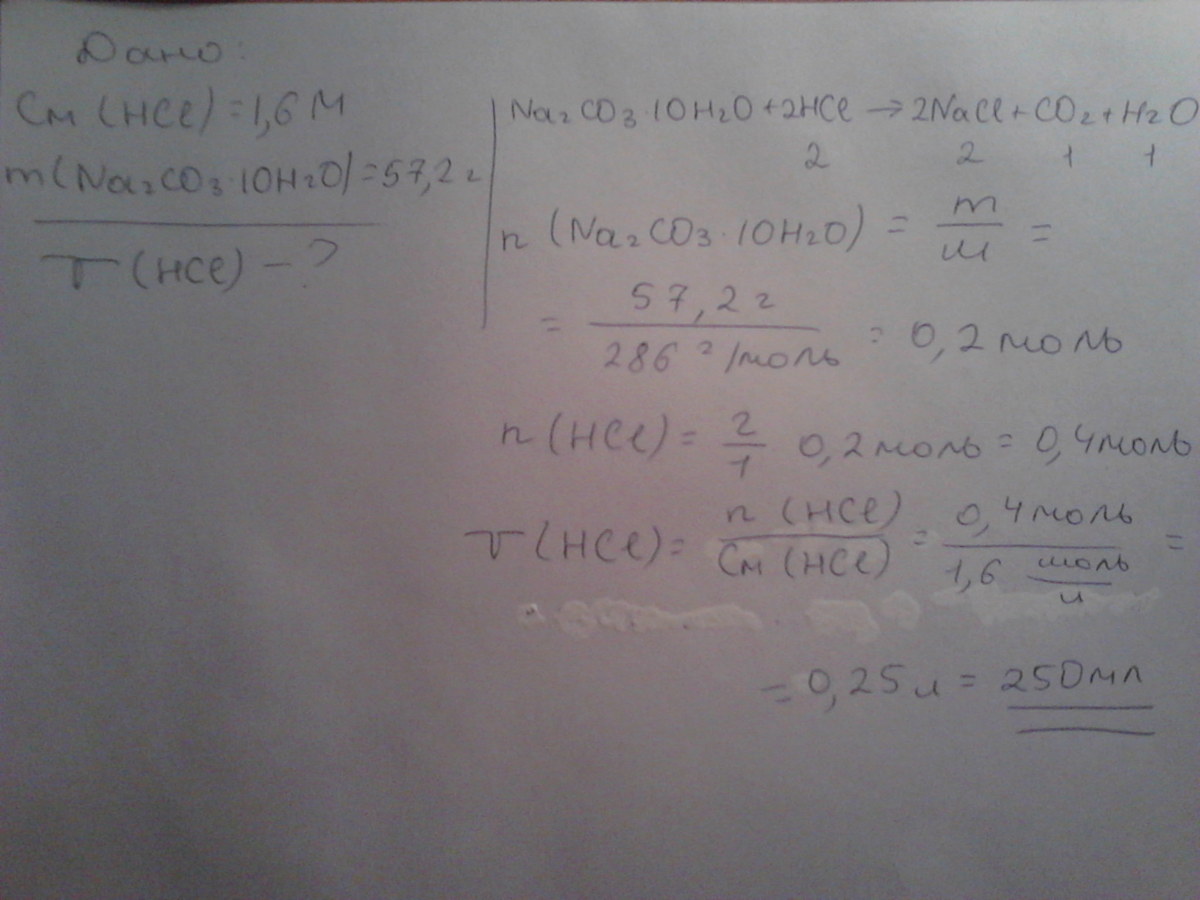 Дано:
См (HCl) = 1,6 М
m(Na₂CO₃·10H₂O) = 57,2 г
V (HCl) - ?
Na₂CO₃·10H₂O + 2HCl → 2NaCl + CO₂ + H₂O
2 2 1 1
n (Na₂CO₃·10H₂O) = m/M =
= 57,2 г / 286 г/моль = 0,2 моль
n (HCl) = 2/1 0,2 моль = 0,4 моль
V (HCl) = n (HCl) / См (HCl) = 0,4 моль / 1,6 моль/л =
= 0,25 л = 250 мл